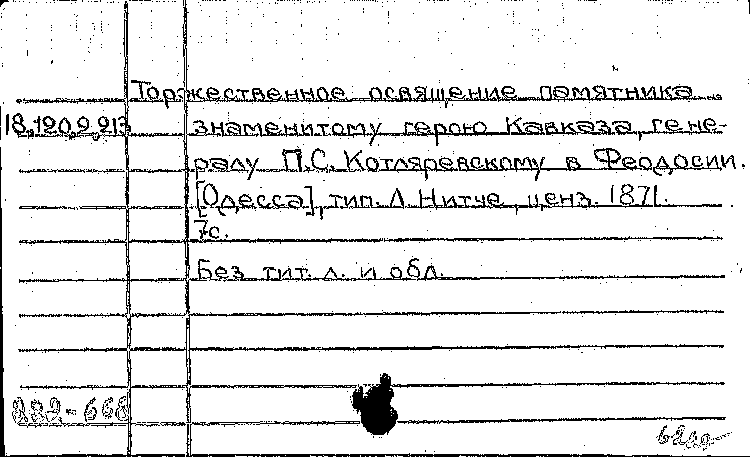 Торжественное освящение памятника
18.120.2.213 знаменитому герою Кавказа, гене-
ралу П.С. Котляревскому в Феодосии.
[Одесса], тип. Л. Нитче, ценз. 1871.
7с.
Без тит. л. и обл.
222-668